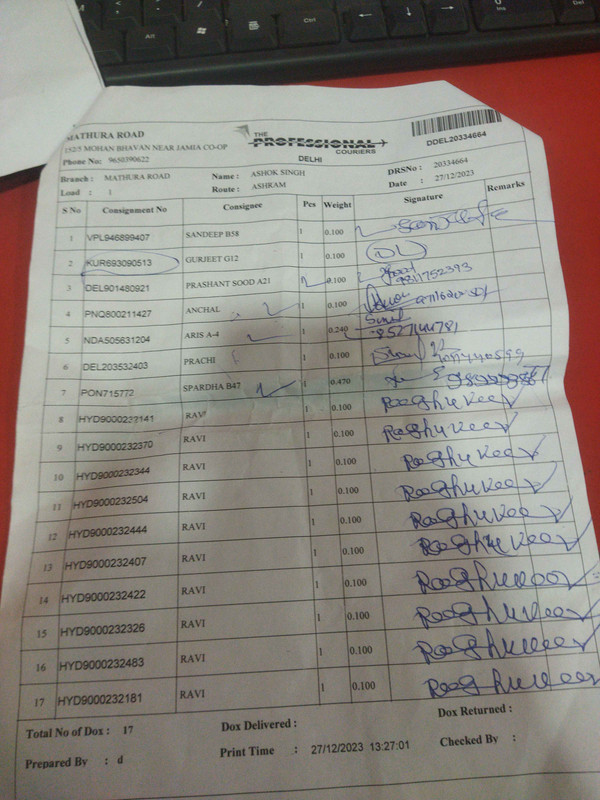 MATHURA ROAD
152/5 MOHAN BHAVAN NEAR JAMIA CO-OP
Phone No: 9650390622
THE PROFESSIONAL COURIERS
DELHI
DDEL20334664
Branch : MATHURA ROAD Name : ASHOK SINGH DRSNo : 20334664
Load : 1 Route : ASHRAM Date : 27/12/2023
S No Consignment No Consignee Pcs Weight Signature Remarks
1 VPL946899407 SANDEEP B58 1 0.100
2 KUR693090513 GURJEET G12 1 0.100
3 DEL901480921 PRASHANT SOOD A21 1 0.100
4 PNQ800211427 ANCHAL 1 0.100
5 NDA505631204 ARIS A-4 1 0.240 8527144781
6 DEL203532403 PRACHI 1 0.100
7 PON715772 SPARDHA B47 1 0.470
8 HYD9000232141 RAVI 1 0.100 Raghuveer
9 HYD9000232370 RAVI 1 0.100 Raghuveer
10 HYD9000232344 RAVI 1 0.100 Raghuveer
11 HYD9000232504 RAVI 1 0.100 Raghuveer
12 HYD9000232444 RAVI 1 0.100 Raghuveer
13 HYD9000232407 RAVI 1 0.100 Raghuveer
14 HYD9000232422 RAVI 1 0.100 Raghuveer
15 HYD9000232326 RAVI 1 0.100 Raghuveer
16 HYD9000232483 RAVI 1 0.100 Raghuveer
17 HYD9000232181 RAVI 1 0.100 Raghuveer
Total No of Dox : 17 Dox Delivered : Dox Returned :
Prepared By : d Print Time : 27/12/2023 13:27:01 Checked By :